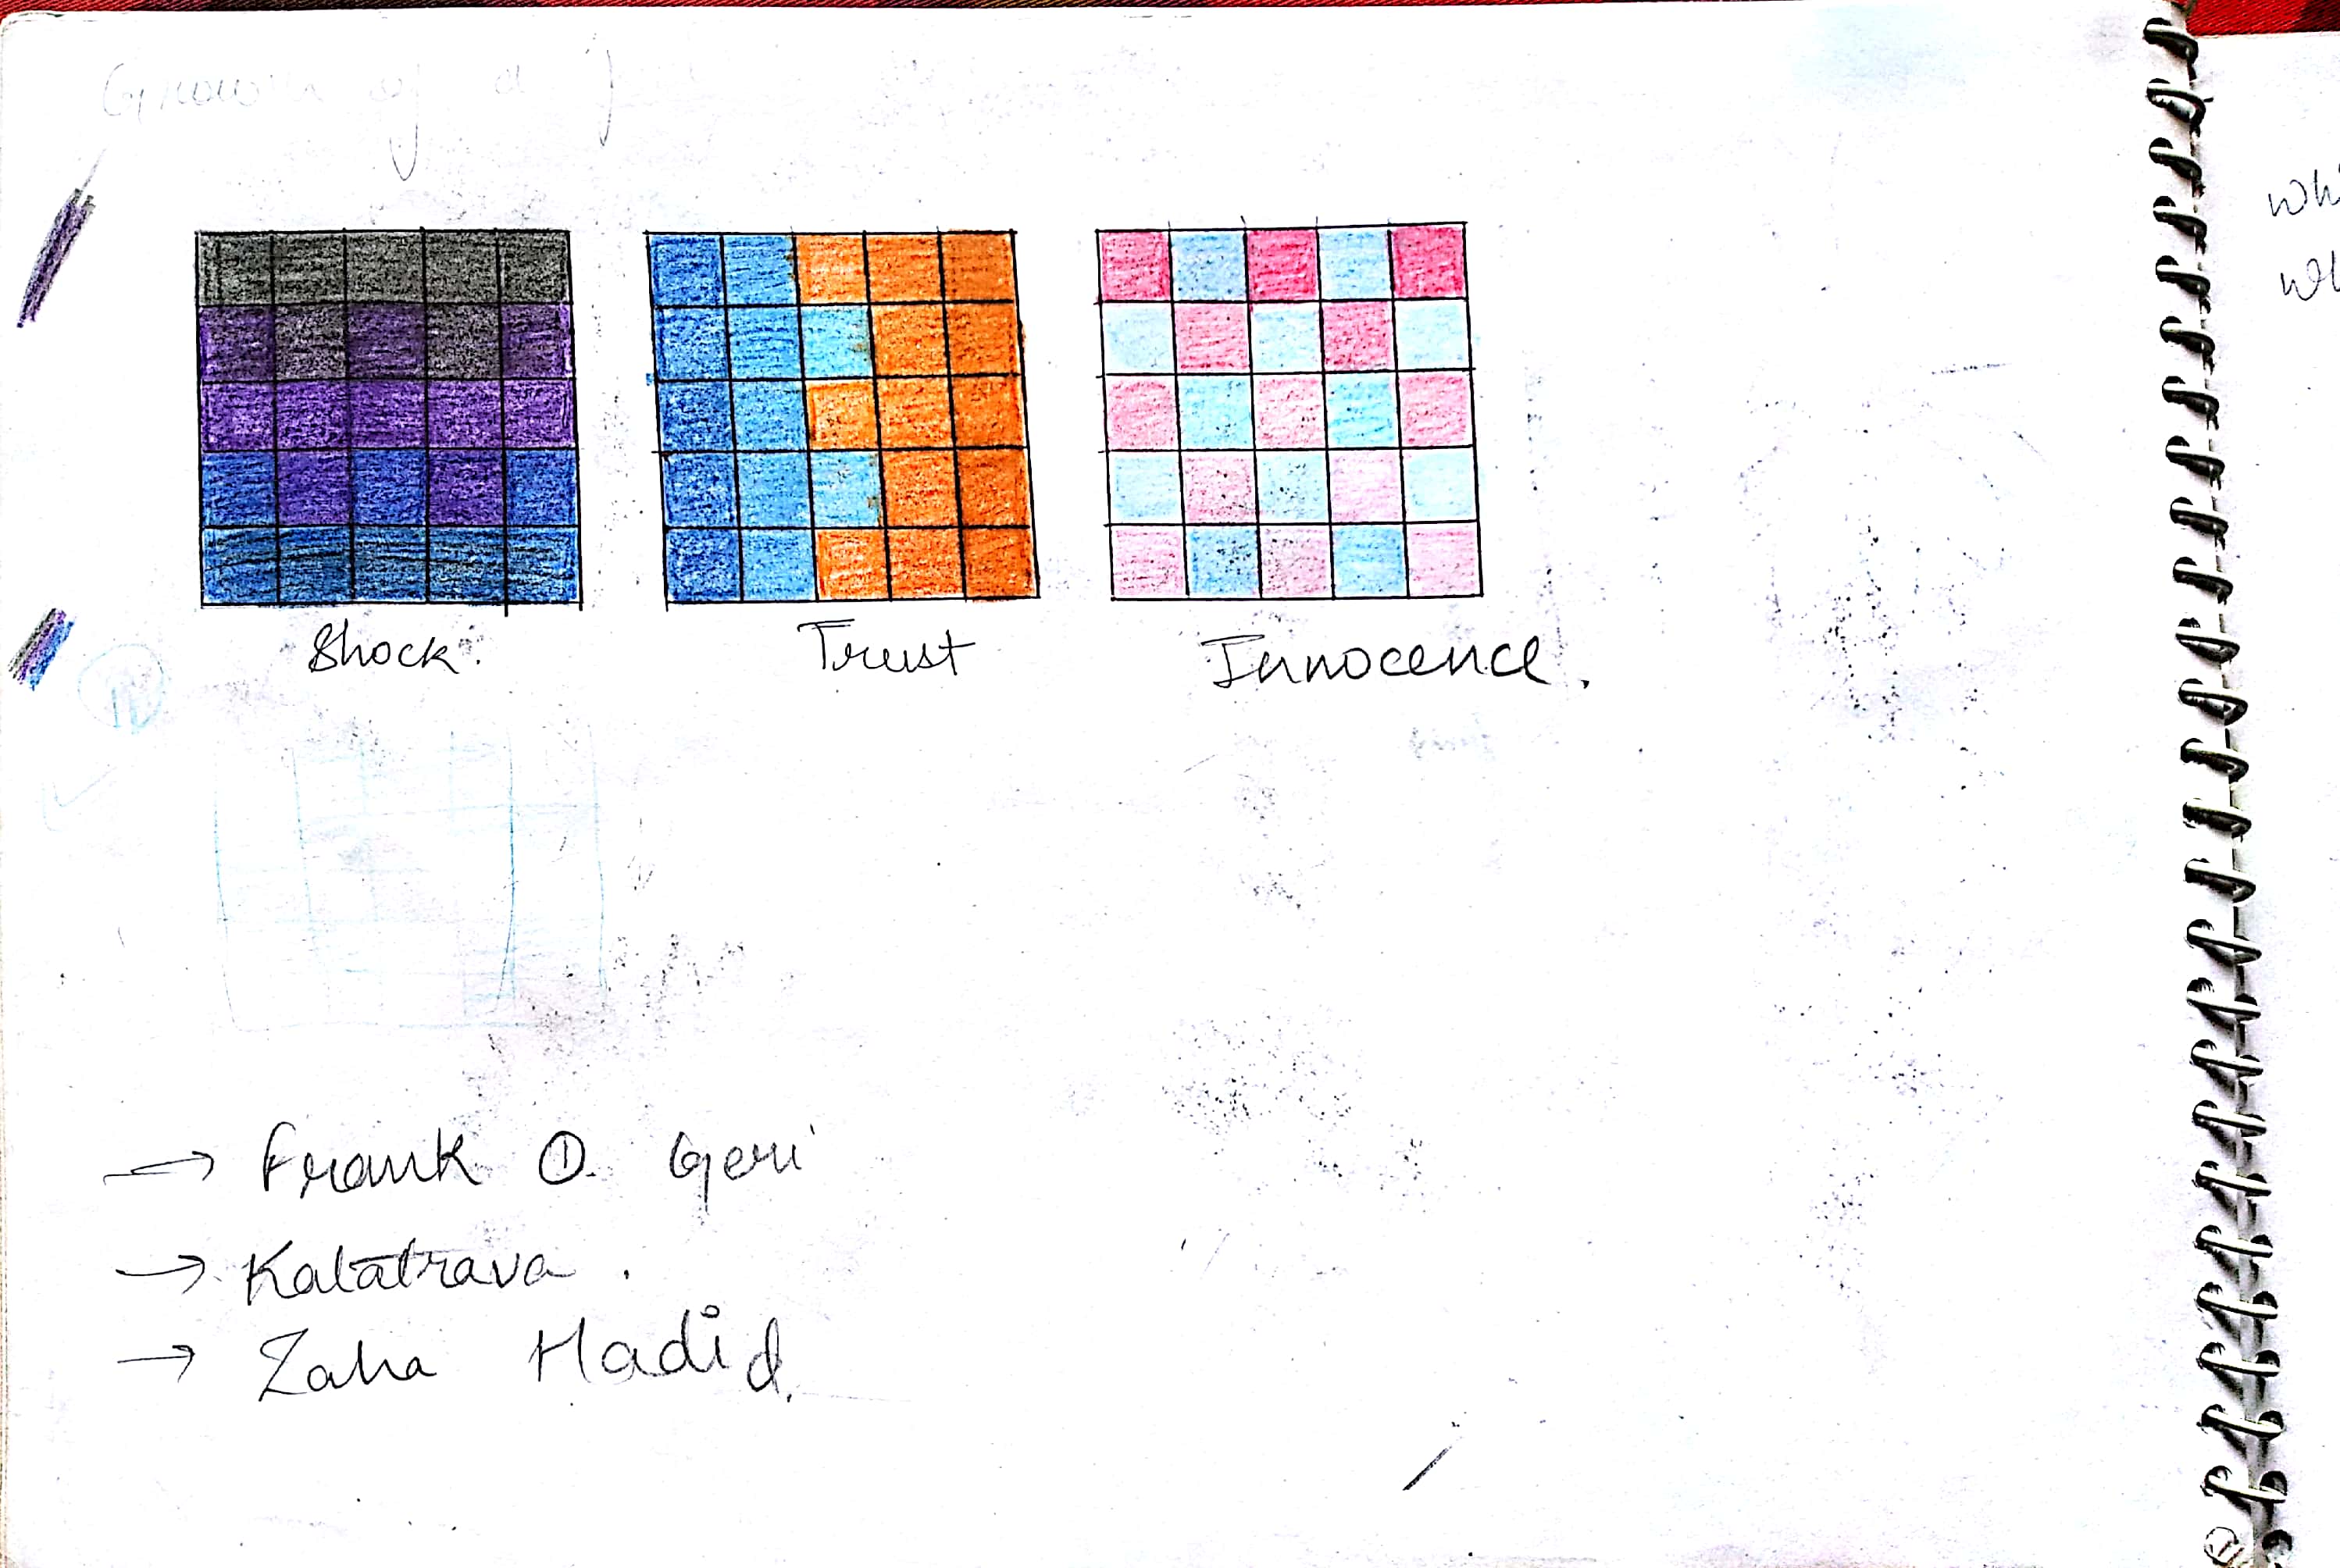 of a
Shock.
Trust
Innocence.
→ Frank O. Geri
→ Kalatrava.
→ Zaha Hadid.